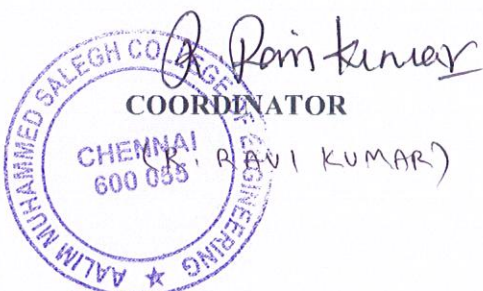 R. Ravi Kumar
COORDINATOR
(R. RAVI KUMAR)
AALIM MUHAMMED SALEGH COLLEGE OF ENGINEERING
CHENNAI
600 055